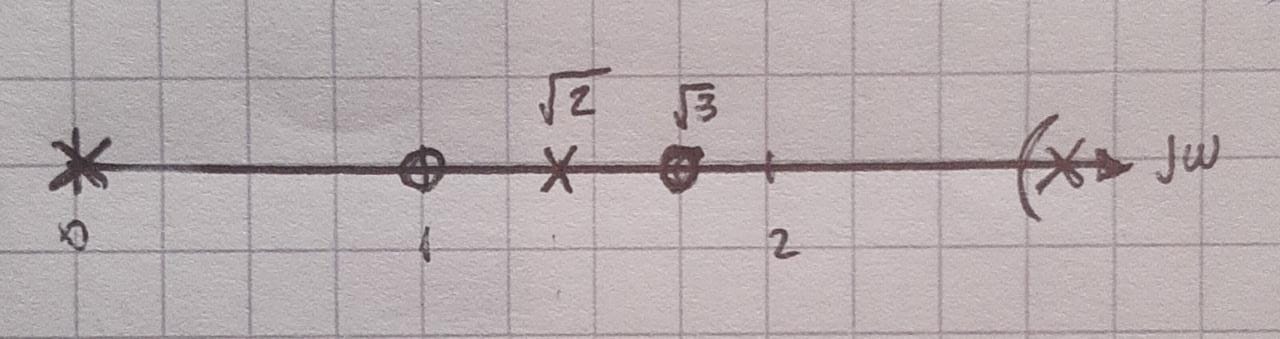 √2 √3
jω
0 1 2